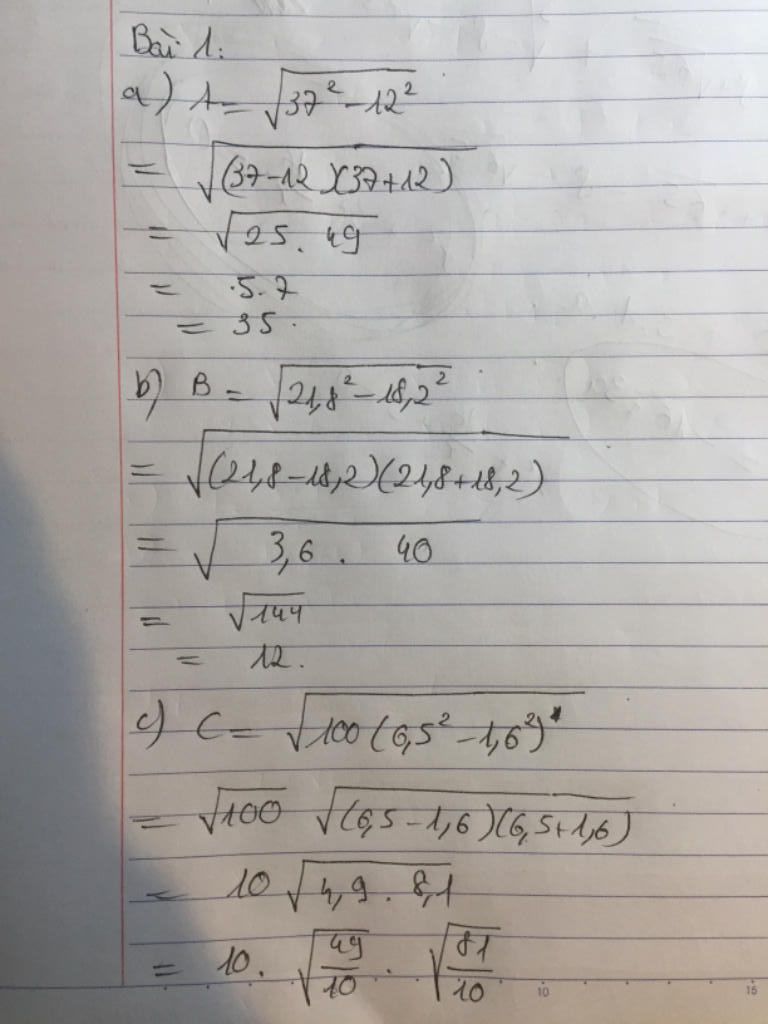 Bài 1:
a) A = √(37² - 12²)
= √((37-12)(37+12))
= √(25 . 49)
= .5.7
= 35.
b) B = √(21,8² - 18,2²)
= √((21,8-18,2)(21,8+18,2))
= √(3,6 . 40)
= √144
= 12.
c) C = √(100(6,5² - 1,6²))
= √100 √((6,5-1,6)(6,5+1,6))
= 10 √(4,9 . 8,1)
= 10. √(49/10) . √(81/10)
10 15